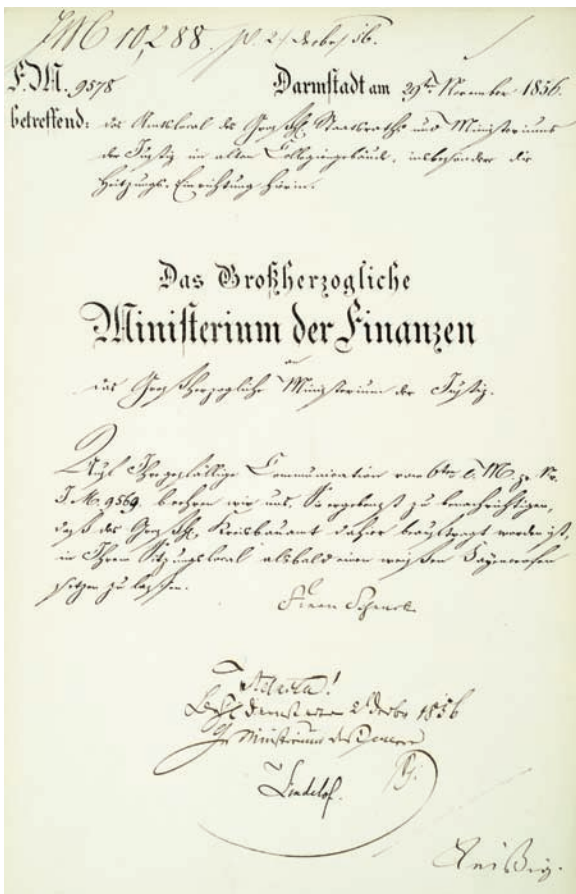 JMC 10,288. pr. 2/ Decbr/ 56.
F. M. 9578 Darmstadt am 29ten November 1856.
betreffend: das Amtslocal des Großh. Staatsraths und Ministeriums
der Justiz im alten Collegiengebäude, insbesondere die
Heitzungs-Einrichtung hierin.
Das Großherzogliche
Ministerium der Finanzen
an
das Großherzogliche Ministerium der Justiz.
Auf Ihre gefällige Communication vom 6ten d. M. zu Nr.
J. M. 9569. beehren wir uns, Sie ergebenst zu benachrichtigen,
daß das Großh. Kreisbauamt dahier beauftragt worden ist,
in Ihrem Sitzungslocal alsbald einen weißen
setzen zu lassen.
Schenck
ad acta!
2 Decbr 1856
Ministerium
Lindelof.